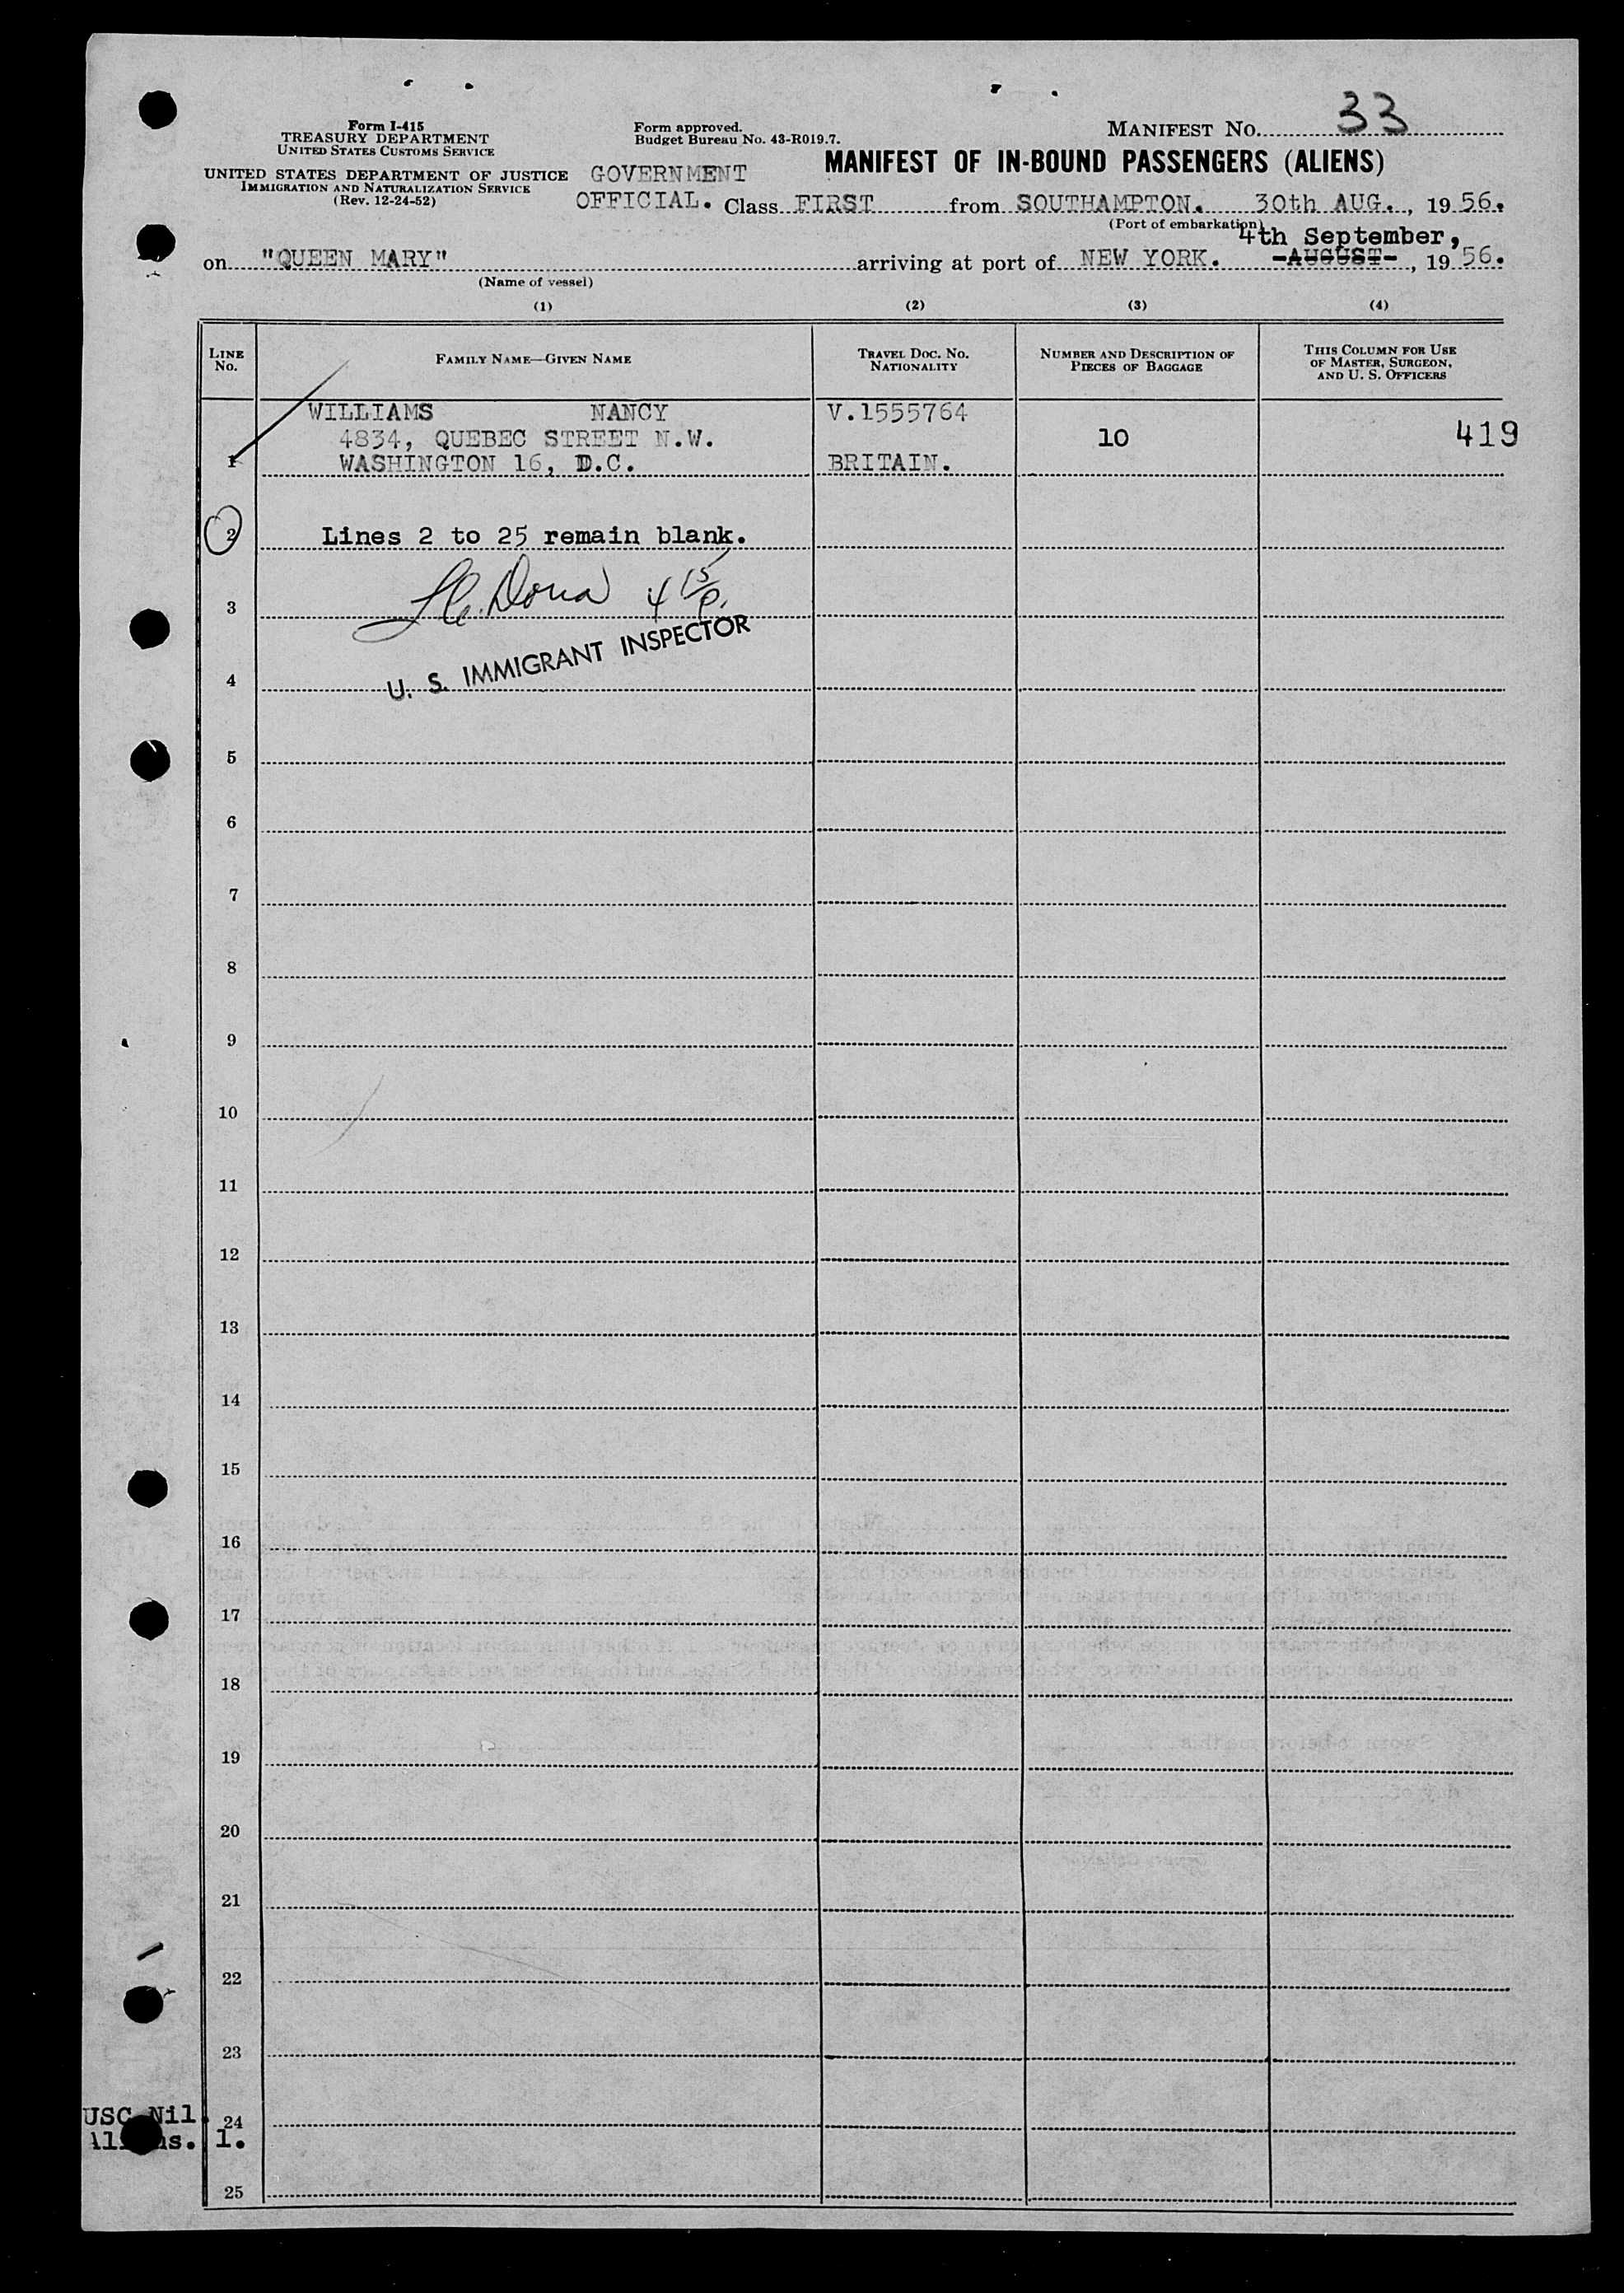 Form I-415
TREASURY DEPARTMENT
UNITED STATES CUSTOMS SERVICE
UNITED STATES DEPARTMENT OF JUSTICE
IMMIGRATION AND NATURALIZATION SERVICE
(Rev. 12-24-52)
Form approved.
Budget Bureau No. 43-R019.7.
MANIFEST NO. 33
MANIFEST OF IN-BOUND PASSENGERS (ALIENS)
GOVERNMENT
OFFICIAL. Class FIRST from SOUTHAMPTON. 30th AUG., 1956.
(Port of embarkation)
4th September,
on "QUEEN MARY" arriving at port of NEW YORK. -AUGUST-, 1956.
(Name of vessel)
(1) (2) (3) (4)
LINE NO. FAMILY NAME—GIVEN NAME TRAVEL DOC. NO. NATIONALITY NUMBER AND DESCRIPTION OF PIECES OF BAGGAGE THIS COLUMN FOR USE OF MASTER, SURGEON, AND U. S. OFFICERS
WILLIAMS NANCY V.1555764
4834, QUEBEC STREET N.W. 10 419
1 WASHINGTON 16, D.C. BRITAIN.
2 Lines 2 to 25 remain blank.
3
U. S. IMMIGRANT INSPECTOR
4
5
6
7
8
9
10
11
12
13
14
15
16
17
18
19
20
21
22
23
USC Nil 24
1.
25